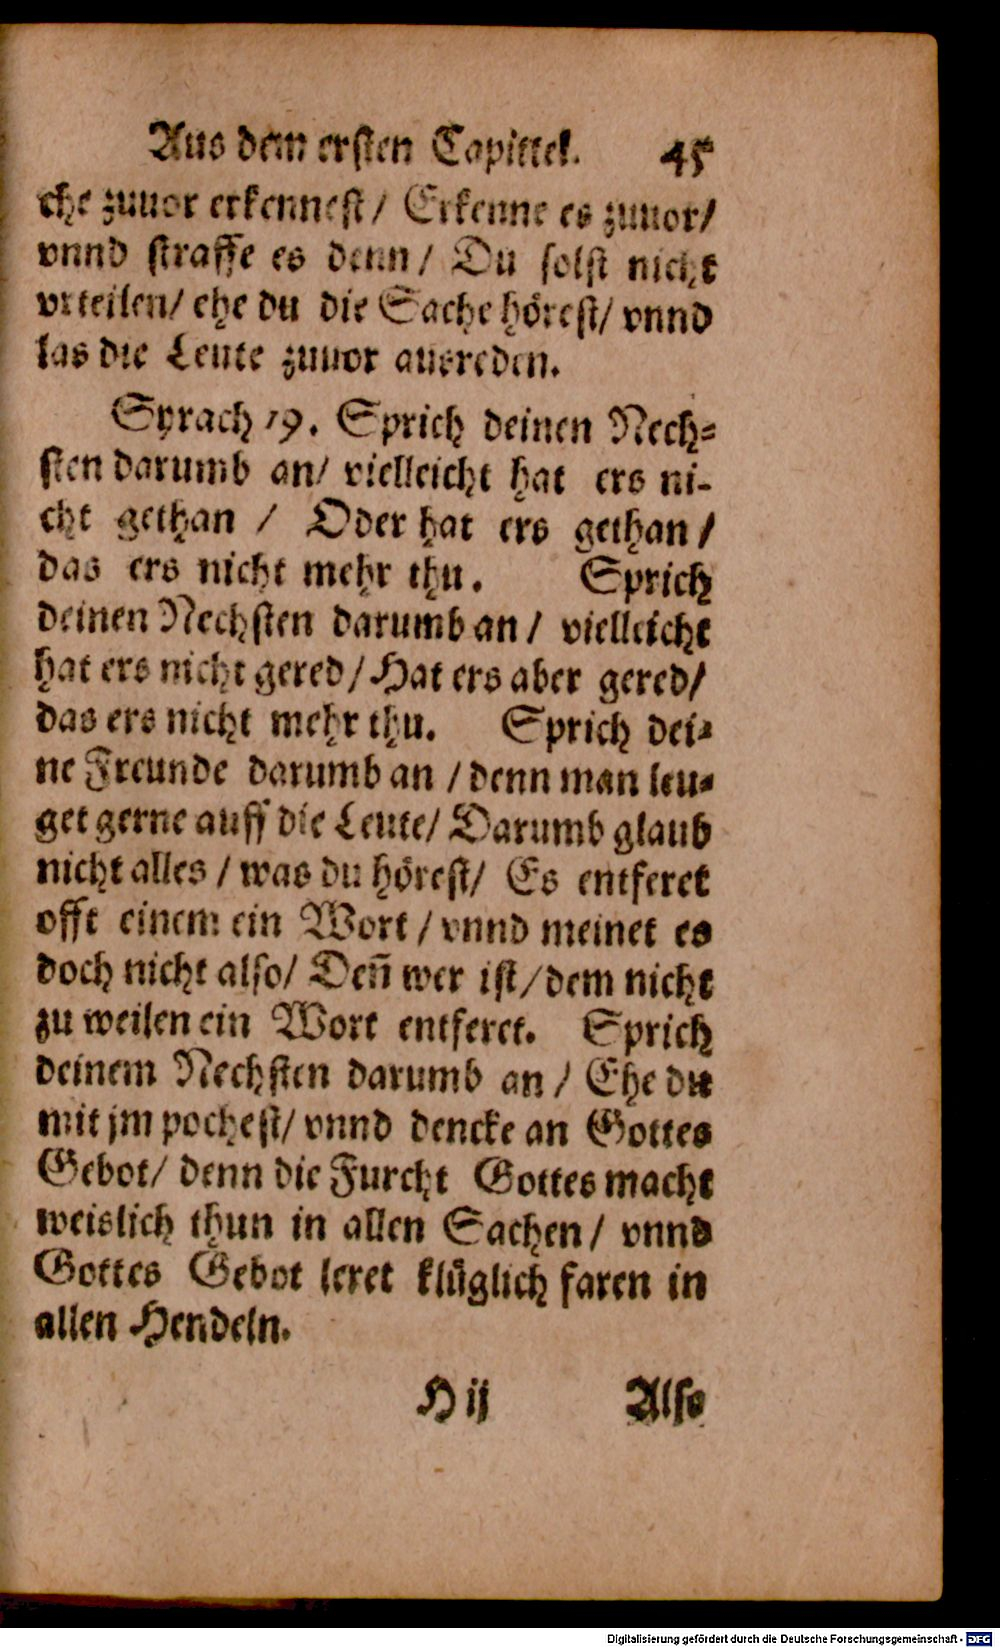 Aus dem ersten Capittel. 45
che zuuor erkennest/ Erkenne es zuuor/
vnnd straffe es denn/ Du solst nicht
vrteilen/ ehe du die Sache hörest/ vnnd
las die Leute zuuor ausreden.
Syrach 19. Sprich deinen Nech-
sten darumb an/ vielleicht hat ers ni-
cht gethan / Oder hat ers gethan/
das ers nicht mehr thu. Sprich
deinen Nechsten darumb an/ vielleicht
hat ers nicht gered/ Hat ers aber gered/
das ers nicht mehr thu. Sprich dei-
ne Freunde darumb an / denn man leu-
get gerne auff die Leute/ Darumb glaub
nicht alles / was du hörest/ Es entferet
offt einem ein Wort / vnnd meinet es
doch nicht also/ Deñ wer ist/ dem nicht
zu weilen ein Wort entferet. Sprich
deinem Nechsten darumb an/ Ehe du
mit jm pochest/ vnnd dencke an Gottes
Gebot/ denn die Furcht Gottes macht
weislich thun in allen Sachen/ vnnd
Gottes Gebot leret klüglich faren in
allen Hendeln.
H ij Also
Digitalisierung gefördert durch die Deutsche Forschungsgemeinschaft - DFG